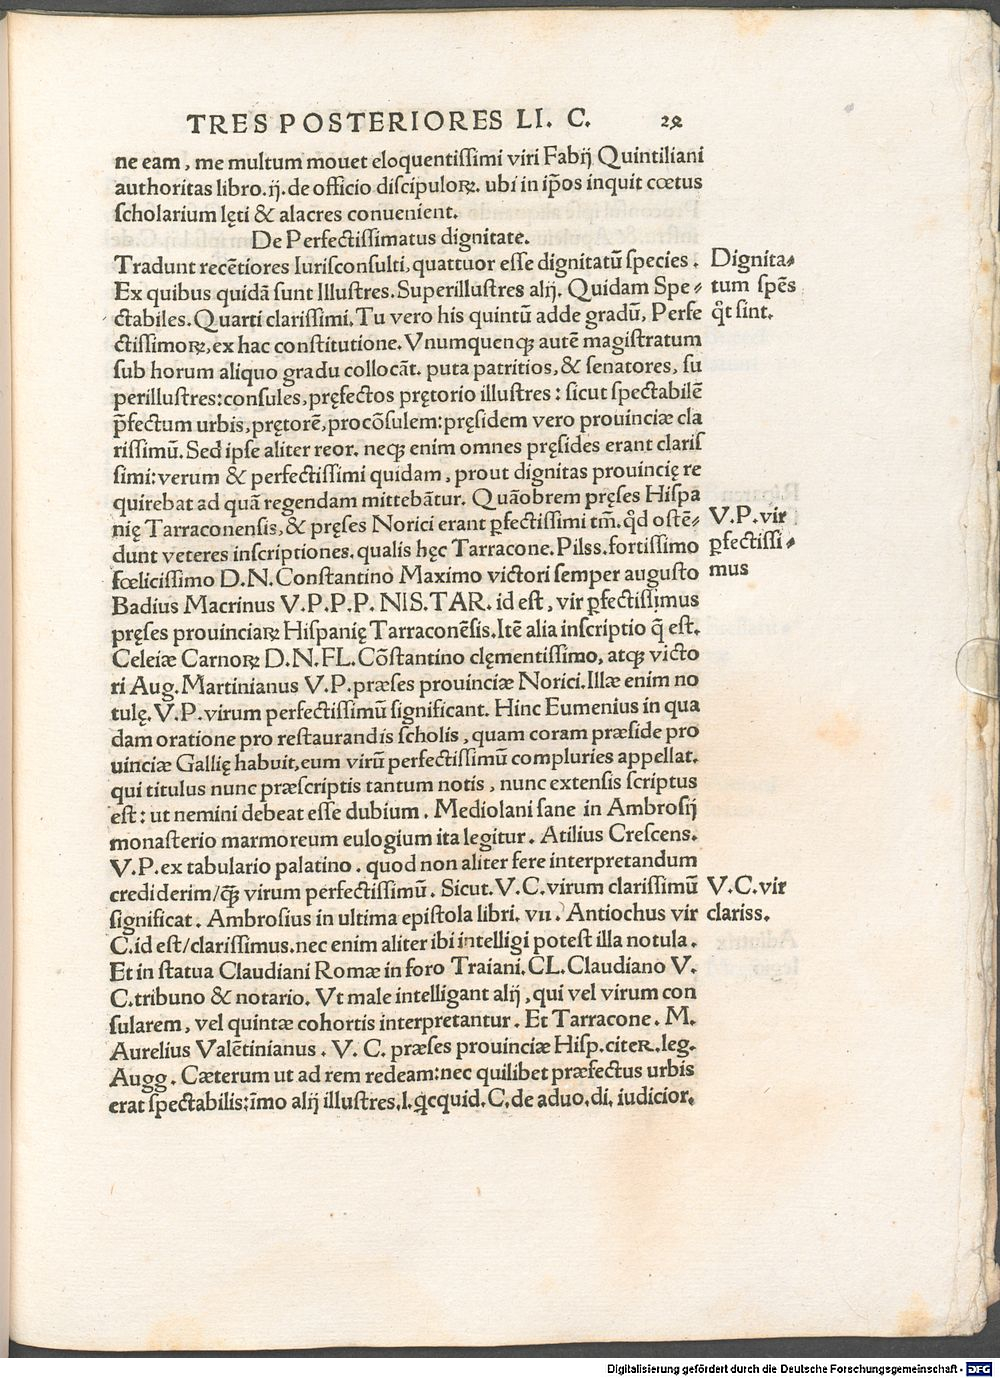 TRES POSTERIORES LI. C. 29
ne eam, me multum mouet eloquentissimi viri Fabij Quintiliani
authoritas libro.ij.de officio discipuloꝝ. ubi in ip̄os inquit cœtus
scholarium lęti & alacres conuenient.
De Perfectissimatus dignitate.
Tradunt recētiores Iurisconsulti, quattuor esse dignitatū species.
Ex quibus quidā sunt Illustres. Superillustres alij. Quidam Spe-
ctabiles. Quarti clarissimi. Tu vero his quintū adde gradū, Perfe
ctissimoꝝ, ex hac constitutione. Vnumquenqꝫ autē magistratum
sub horum aliquo gradu collocāt. puta patritios, & senatores, su
perillustres: consules, pręfectos prętorio illustres: sicut spectabilē
p̄fectum urbis, prętorē, procōsulem: pręsidem vero prouinciæ cla
rissimū. Sed ipse aliter reor. neqꝫ enim omnes pręsides erant claris
simi: verum & perfectissimi quidam, prout dignitas prouincię re
quirebat ad quā regendam mittebātur. Quāobrem pręses Hispa
nię Tarraconensis, & pręses Norici erant ꝑfectissimi tm̄. qd̓ ostē-
dunt veteres inscriptiones. qualis hęc Tarracone. Pilss. fortissimo
fœlicissimo D.N. Constantino Maximo victori semper augusto
Badius Macrinus V.P.P.P. NIS. TAR. id est, vir ꝑfectissimus
pręses prouinciaꝝ Hispanię Tarraconēsis. Itē alia inscriptio q̄ est.
Celeiæ Carnoꝝ D.N.FL. Cōstantino clęmentissimo, atqꝫ victo
ri Aug. Martinianus V.P. præses prouinciæ Norici. Illæ enim no
tulę. V.P. virum perfectissimū significant. Hinc Eumenius in qua
dam oratione pro restaurandis scholis, quam coram præside pro
uinciæ Gallię habuit, eum virū perfectissimū compluries appellat.
qui titulus nunc præscriptis tantum notis, nunc extensis scriptus
est: ut nemini debeat esse dubium. Mediolani sane in Ambrosij
monasterio marmoreum eulogium ita legitur. Atilius Crescens.
V.P. ex tabulario palatino. quod non aliter fere interpretandum
crediderim/qꝫ̄ virum perfectissimū. Sicut. V.C. virum clarissimū
significat. Ambrosius in ultima epistola libri. vii. Antiochus vir
C. id est/clarissimus. nec enim aliter ibi intelligi potest illa notula.
Et in statua Claudiani Romæ in foro Traiani. CL. Claudiano V.
C. tribuno & notario. Vt male intelligant alij, qui vel virum con
sularem, vel quintæ cohortis interpretantur. Et Tarracone. M.
Aurelius Valētinianus. V. C. præses prouinciæ Hisp. citeR. leg.
Augg. Cæterum ut ad rem redeam: nec quilibet præfectus urbis
erat spectabilis: īmo alij illustres. l. qcquid. C. de aduo. di. iudicior.
Dignita-
tum spēs
qt̓ sint.
V.P. vir
ꝑfectissi-
mus
V.C. vir
clariss.
Digitalisierung gefördert durch die Deutsche Forschungsgemeinschaft - DFG